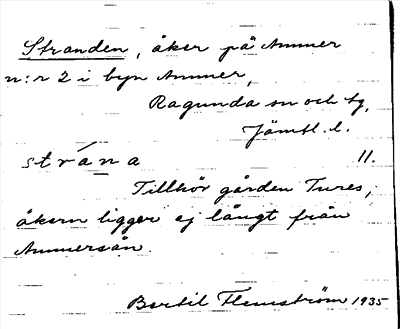 Stranden, åker på Ammer
n:r 2 i byn Ammer,
Ragunda sn och tg,
Jämtl. l.
strána 11.
Tillhör gården Tures,
åkern ligger ej långt från
Ammerån.
Bertil Flemström 1935